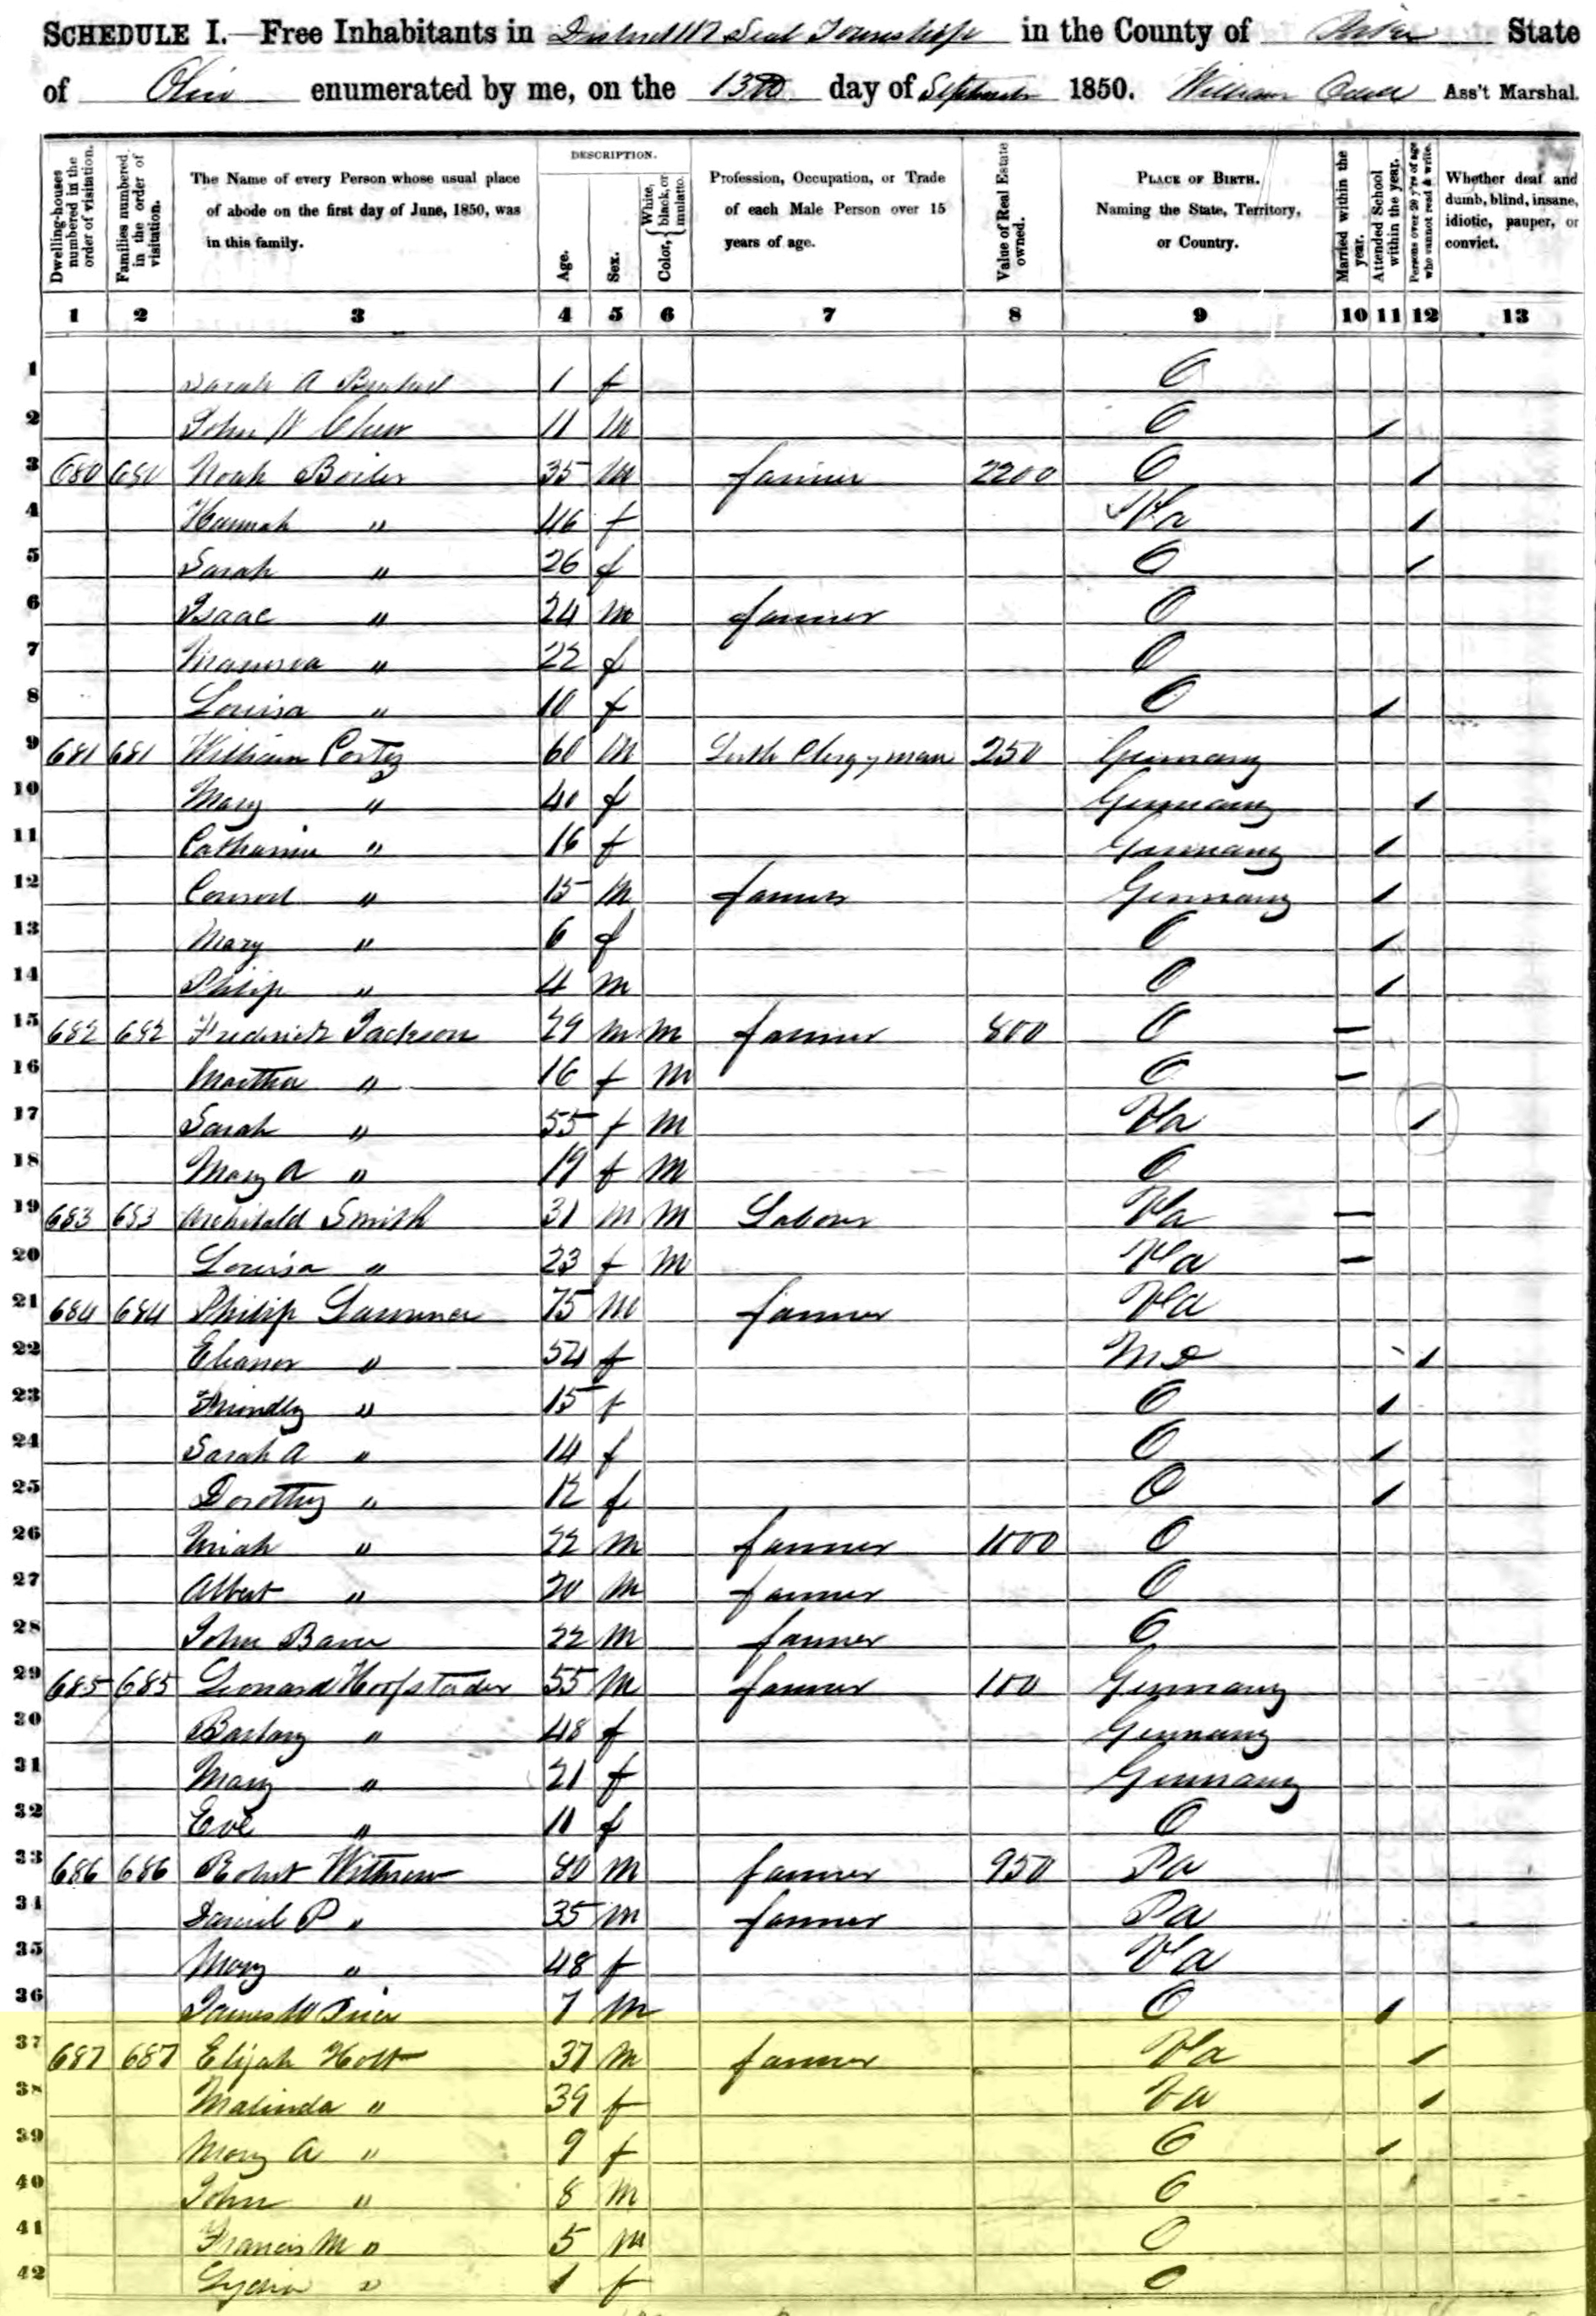 SCHEDULE I.—Free Inhabitants in District 117 Seal Township in the County of Pike State
of Ohio enumerated by me, on the 13th day of September 1850. William Ass't Marshal.
Dwelling-houses numbered in the order of visitation.
Families numbered in the order of visitation.
The Name of every Person whose usual place of abode on the first day of June, 1850, was in this family.
DESCRIPTION.
Age.
Sex.
Color, { White, black, or mulatto.
Profession, Occupation, or Trade of each Male Person over 15 years of age.
Value of Real Estate owned.
PLACE OF BIRTH. Naming the State, Territory, or Country.
Married within the year.
Attended School within the year.
Persons over 20 y'rs of age who cannot read & write.
Whether deaf and dumb, blind, insane, idiotic, pauper, or convict.
1 2 3 4 5 6 7 8 9 10 11 12 13
1 Sarah A 1 f O
2 John W Chew 11 m O /
3 680 680 Noah Boiler 35 m farmer 2200 O /
4 Hannah " 46 f Va /
5 Sarah " 26 f O /
6 Isaac " 24 m farmer O
7 Manerva " 22 f O
8 Louisa " 10 f O /
9 681 681 William Cortez 60 m Luth Clergyman 250 Germany
10 Mary " 40 f Germany /
11 Catharine " 16 f Germany /
12 Conrod " 15 m farmer Germany /
13 Mary " 6 f O /
14 Philip " 4 m O /
15 682 682 Frederick Jackson 29 m m farmer 800 O —
16 Martha " 16 f m O —
17 Sarah " 55 f m Va /
18 Mary A " 19 f m O
19 683 683 Archibald Smith 31 m m Labour Va —
20 Louisa " 23 f m Va —
21 684 684 Philip 75 m farmer Va
22 Eleanor " 54 f Md /
23 Frindly " 15 f O /
24 Sarah A " 14 f O /
25 Dorothy " 12 f O /
26 Uriah " 22 m farmer 1000 O
27 Albert " 20 m farmer O
28 John 22 m farmer O
29 685 685 Leonard Hoofstader 55 m farmer 100 Germany
30 Barbary " 48 f Germany
31 Mary " 21 f Germany
32 Eve " 11 f O
33 686 686 Robert Withrow 80 m farmer 950 Pa
34 Daniel P " 35 m farmer Pa
35 Mary " 48 f Va
36 James W 7 m O /
37 687 687 Elijah Holt 37 m farmer Va /
38 Malinda " 39 f Va /
39 Mary A " 9 f O /
40 John " 8 m O
41 Francis M " 5 m O
42 Lydia " 1 f O